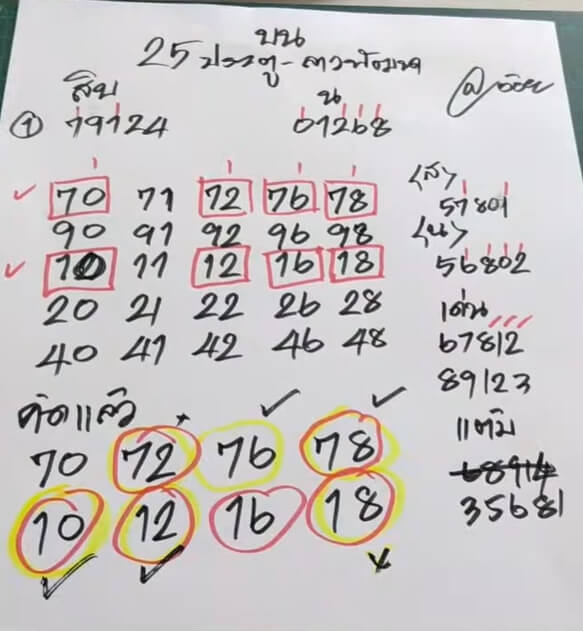 บน
25 ประตู - ลาวพัฒนา
สิบ
น
① 79124
01268
70 71 72 76 78
90 91 92 96 98
10 11 12 16 18
20 21 22 26 28
40 41 42 46 48
<ส>
57801
<น>
56802
เด่น
67812
89123
แต้ม
68914
35681
คัดแล้ว
70 72 76 78
10 12 16 18